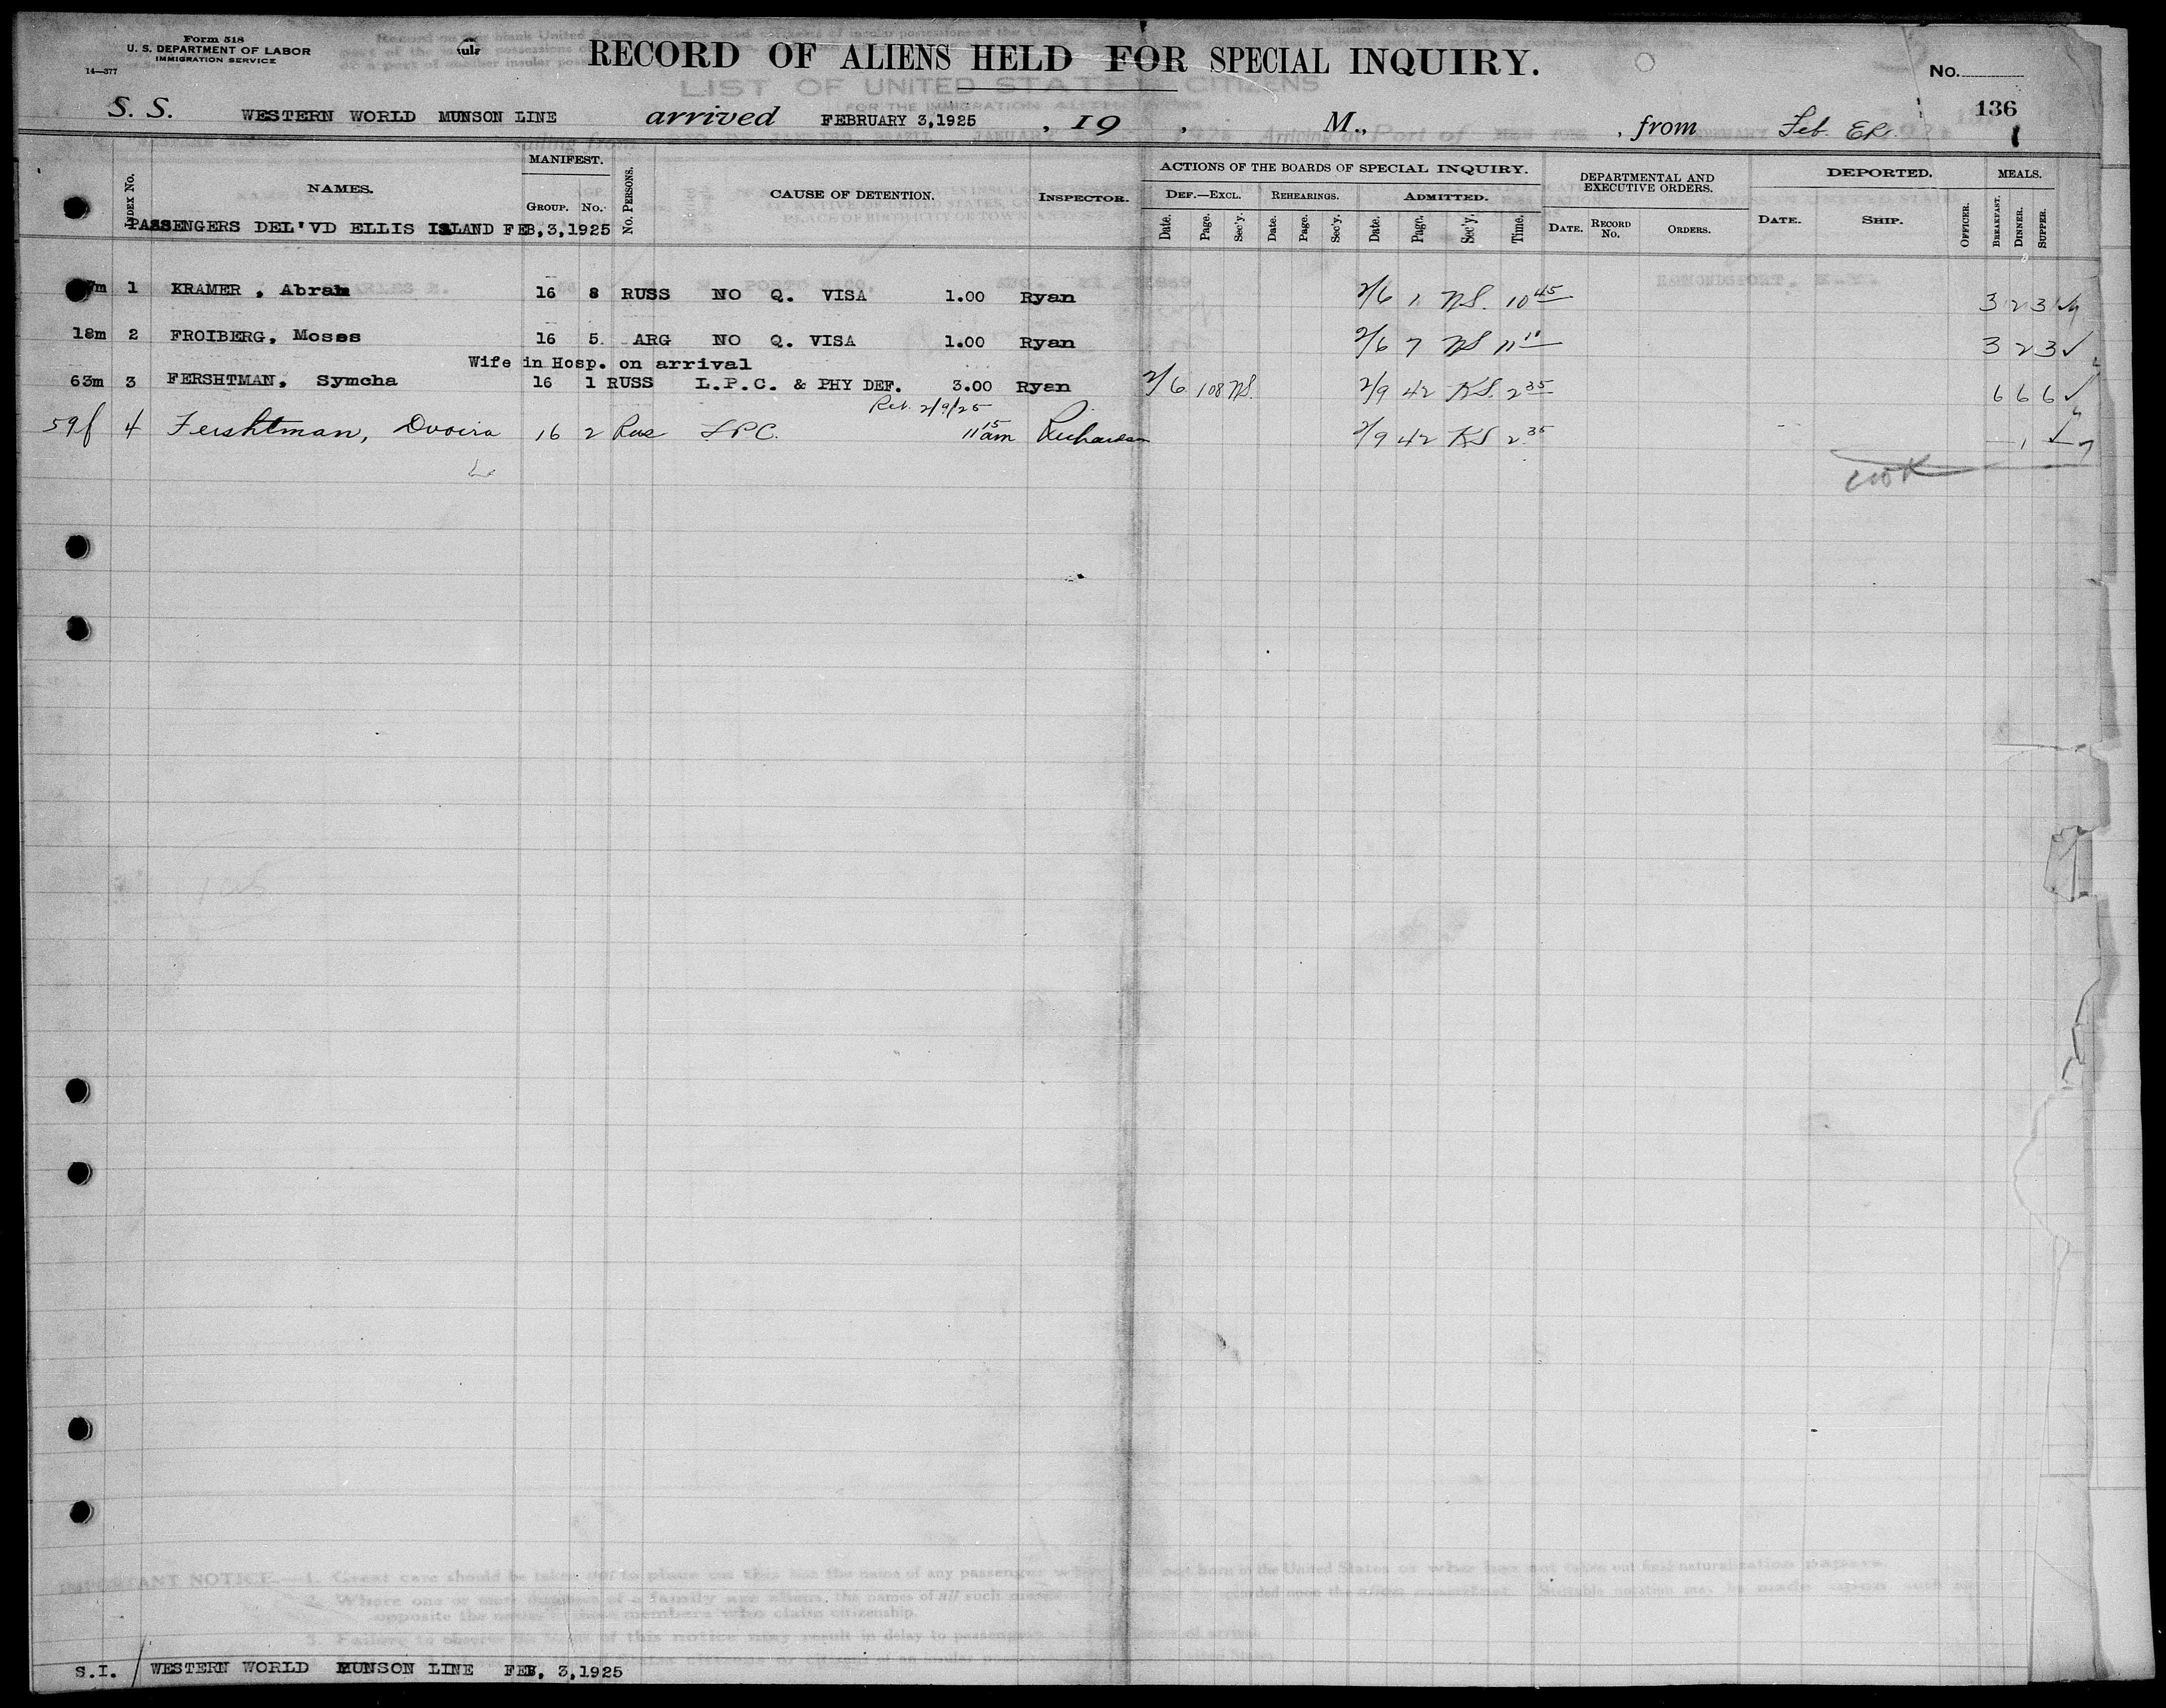 Form 518
U. S. DEPARTMENT OF LABOR
IMMIGRATION SERVICE
14—377
RECORD OF ALIENS HELD FOR SPECIAL INQUIRY.
No.
136
S. S. WESTERN WORLD MUNSON LINE arrived FEBRUARY 3,1925 , 19 , M., , from Feb.
1
INDEX No. NAMES. MANIFEST. GROUP. No. No. PERSONS. CAUSE OF DETENTION. INSPECTOR. ACTIONS OF THE BOARDS OF SPECIAL INQUIRY. DEPARTMENTAL AND EXECUTIVE ORDERS. DEPORTED. MEALS.
DEF.—EXCL. REHEARINGS. ADMITTED.
Date. Page. Sec'y. Date. Page. Sec'y. Date. Page. Sec'y. Time. DATE. RECORD No. ORDERS. DATE. SHIP. OFFICER. BREAKFAST. DINNER. SUPPER.
PASSENGERS DEL'VD ELLIS ISLAND FEB,3,1925
7m 1 KRAMER , Abram 16 8 RUSS NO Q. VISA 1.00 Ryan 2/6 1 NS. 10 45 3 2 3
18m 2 FROIBERG, Moses 16 5 ARG NO Q. VISA 1.00 Ryan 2/6 7 NS 11 3 2 3 ✓
Wife in Hosp. on arrival
63m 3 FERSHTMAN, Symcha 16 1 RUSS L.P.C. & PHY DEF. 3.00 Ryan 2/6 108 NS. 2/9 42 KS. 2 35 6 6 6 ✓
Rel. 2/9/25
59f 4 Fershtman, Dvoira 16 2 Rus LPC. 11 15 am Richardson 2/9 42 KS 2 35 — 1
S.I. / WESTERN WORLD MUNSON LINE FEB, 3,1925